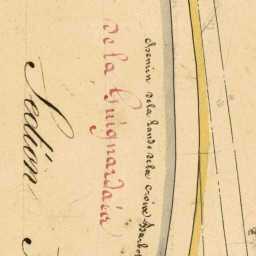 chemin de la lande de la croix
de la Guignardais
Section